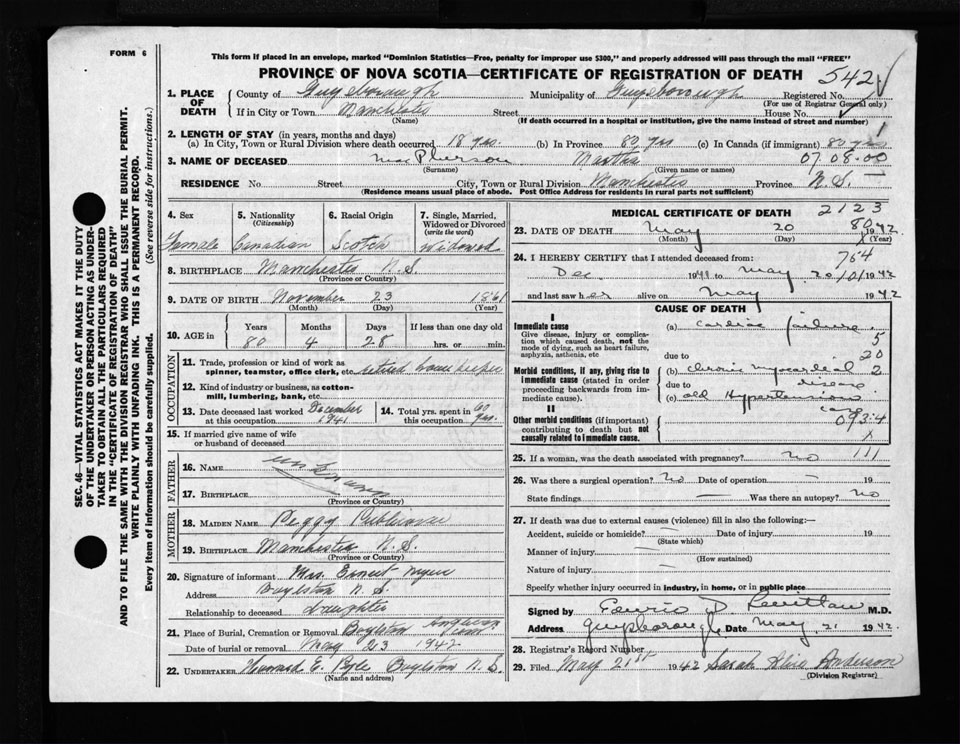 FORM 6
This form if placed in an envelope, marked "Dominion Statistics—Free, penalty for improper use $300," and properly addressed will pass through the mail "FREE"
PROVINCE OF NOVA SCOTIA—CERTIFICATE OF REGISTRATION OF DEATH 542
1. PLACE OF DEATH County of Guysborough Municipality of Guysborough Registered No.
(For use of Registrar General only)
If in City or Town Manchester Street House No.
(Name) (If death occurred in a hospital or institution, give the name instead of street and number)
2. LENGTH OF STAY (in years, months and days)
(a) In City, Town or Rural Division where death occurred 18 yrs. (b) In Province 80 yrs (c) In Canada (if immigrant) 80 yrs
3. NAME OF DECEASED MacPherson Martha 07.08.00
(Surname) (Given name or names)
RESIDENCE No. Street City, Town or Rural Division Manchester Province N.S.
(Residence means usual place of abode. Post Office Address for residents in rural parts not sufficient)
4. Sex 5. Nationality (Citizenship) 6. Racial Origin 7. Single, Married, Widowed or Divorced (write the word)
Female Canadian Scotch Widowed
8. BIRTHPLACE Manchester N.S.
(Province or Country)
9. DATE OF BIRTH November 23 1861
(Month) (Day) (Year)
10. AGE in Years Months Days If less than one day old
80 4 28 hrs. or min.
OCCUPATION
11. Trade, profession or kind of work as spinner, teamster, office clerk, etc. retired housekeeper
12. Kind of industry or business, as cotton-mill, lumbering, bank, etc.
13. Date deceased last worked at this occupation December 1941 14. Total yrs. spent in this occupation 60 yrs.
15. If married give name of wife or husband of deceased
FATHER
16. NAME unknown
17. BIRTHPLACE
(Province or Country)
MOTHER
18. MAIDEN NAME Peggy
19. BIRTHPLACE Manchester N.S.
(Province or Country)
20. Signature of informant Mrs. Ernest
Address Boylston N.S.
Relationship to deceased Daughter
21. Place of Burial, Cremation or Removal Boylston Anglican
Date of burial or removal May 23 1942
22. UNDERTAKER Howard E. Pyle Boylston N.S.
(Name and address)
MEDICAL CERTIFICATE OF DEATH 2123
23. DATE OF DEATH May 20 1942
(Month) (Day) (Year)
24. I HEREBY CERTIFY that I attended deceased from: 764
Dec 1941 to May 20 1942
and last saw her alive on May 1942
CAUSE OF DEATH
I
Immediate cause
Give disease, injury or complication which caused death, not the mode of dying, such as heart failure, asphyxia, asthenia, etc
(a) cardiac failure 5
due to 20
Morbid conditions, if any, giving rise to immediate cause (stated in order proceeding backwards from immediate cause).
(b) chronic myocardial disease 2
due to
(c) old Hypertension
II
Other morbid conditions (if important) contributing to death but not causally related to immediate cause.
093.4
25. If a woman, was the death associated with pregnancy? no 111
26. Was there a surgical operation? No Date of operation — 19
State findings — Was there an autopsy? No
27. If death was due to external causes (violence) fill in also the following:—
Accident, suicide or homicide? — Date of injury 19
(State which)
Manner of injury —
(How sustained)
Nature of injury —
Specify whether injury occurred in industry, in home, or in public place
Signed by M.D.
Address Guysborough Date May 21 1942.
28. Registrar's Record Number
29. Filed May 21st 1942 Sarah Anderson
(Division Registrar)
SEC. 46—VITAL STATISTICS ACT MAKES IT THE DUTY
OF THE UNDERTAKER OR PERSON ACTING AS UNDER-
TAKER TO OBTAIN ALL THE PARTICULARS REQUIRED
IN THE "CERTIFICATE OF REGISTRATION OF DEATH"
AND TO FILE THE SAME WITH THE DIVISION REGISTRAR WHO SHALL ISSUE THE BURIAL PERMIT.
WRITE PLAINLY WITH UNFADING INK. THIS IS A PERMANENT RECORD.
Every item of information should be carefully supplied. (See reverse side for instructions.)